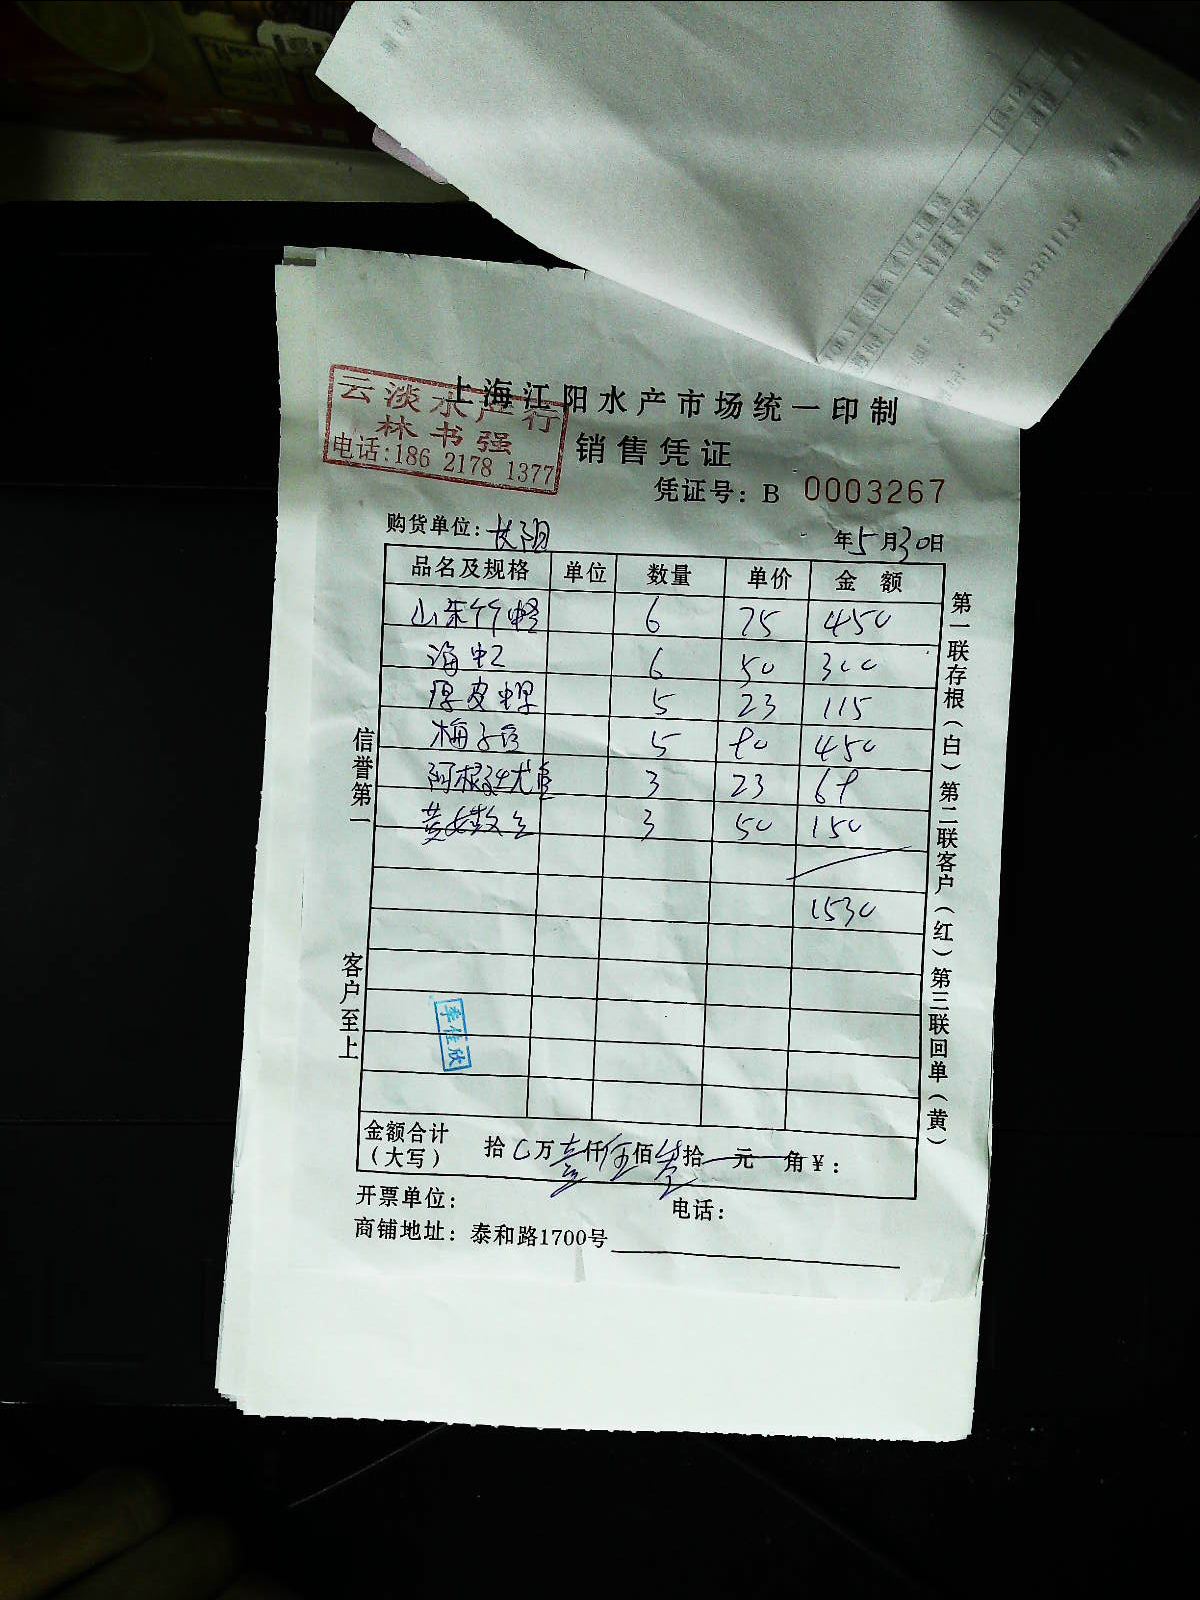 上海江阳水产市场统一印制
云淡水产行
林书强
电话:186 2178 1377
销售凭证
凭证号: B 0003267
购货单位: 长阳
年5月30日
品名及规格 单位 数量 单价 金 额
山东竹蛏 6 75 450
海虹 6 50 300
厚皮 5 23 115
梅子 5 90 450
阿根廷尤鱼 3 23 69
黄 3 50 150
1530
信誉第一
客户至上
季佳欣
第一联存根(白)第二联客户(红)第三联回单(黄)
金额合计 (大写) 拾 万壹仟伍佰叁拾 元 角¥:
开票单位: 电话:
商铺地址: 泰和路1700号